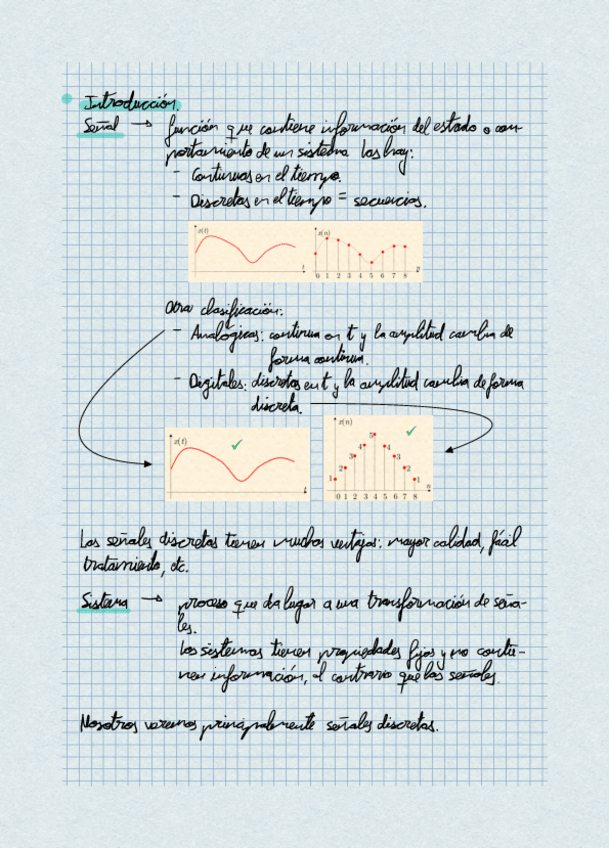 Introducción.
Señal → función que contiene información del estado o com-
portamiento de un sistema. Los hay:
- Continuas en el tiempo.
- Discretas en el tiempo = secuencias.
x(t) x(n)
t 0 1 2 3 4 5 6 7 8 n
Otra clasificación:
- Analógicas: continua en t y la amplitud cambia de
forma continua.
- Digitales: discretas en t y la amplitud cambia de forma
discreta.
x(t) ✓ x(n) ✓
5
4 4
3 3
2 2
1 1
t 0 1 2 3 4 5 6 7 8 n
Las señales discretas tienen muchas ventajas: mayor calidad, fácil
tratamiento, etc.
Sistema → proceso que da lugar a una transformación de seña-
les.
Los sistemas tienen propiedades fijas y no contie-
nen información, al contrario que las señales.
Nosotros veremos principalmente señales discretas.